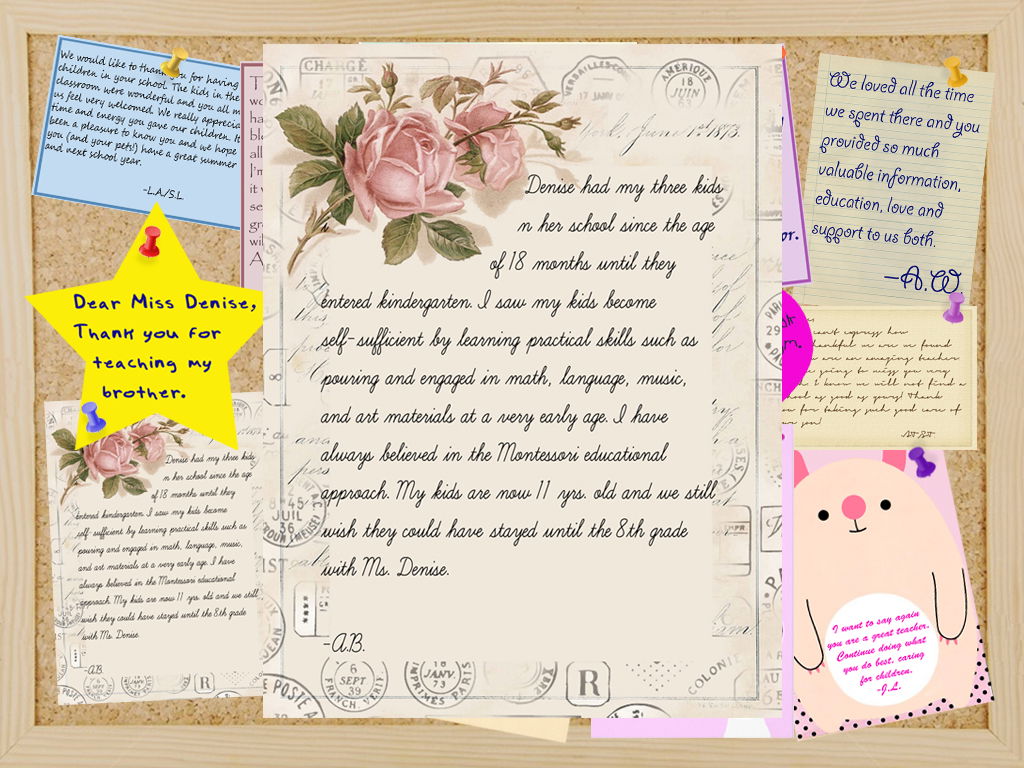 We would like to thank you for having
children in your school. The kids in the
classroom were wonderful and you all m
us feel very welcomed. We really apprecia
time and energy you gave our children. It
been a pleasure to know you and we hope
you (and your pets!) have a great summer
and next school year.
-L.A./S.L.
Dear Miss Denise,
Thank you for
teaching my
brother.
Denise had my three kids
n her school since the age
of 18 months until they
entered kindergarten. I saw my kids become
self-sufficient by learning practical skills such as
pouring and engaged in math, language, music,
and art materials at a very early age. I have
always believed in the Montessori educational
approach. My kids are now 11 yrs. old and we still
wish they could have stayed until the 8th grade
with Ms. Denise.
-A.B.
CHARGÉ
AMERIQUE
18
JUIN
63
York, June 1st 1873.
6
SEPT
39
JANV.
73
R
COLONI
POSTE
Denise had my three kids
n her school since the age
of 18 months until they
entered kindergarten. I saw my kids become
self-sufficient by learning practical skills such as
pouring and engaged in math, language, music,
and art materials at a very early age. I have
always believed in the Montessori educational
approach. My kids are now 11 yrs. old and we still
wish they could have stayed until the 8th grade
with Ms. Denise.
-A.B.
R
We loved all the time
we spent there and you
provided so much
valuable information,
education, love and
support to us both.
-A.W.
or.
m.
cant express how
hankful we are we found
are an amazing teacher
going to miss you very
I know we will not find a
school as good as yours! Thank
for taking such good care of
you!
I want to say again
you are a great teacher.
Continue doing what
you do best, caring
for children.
-J.L.